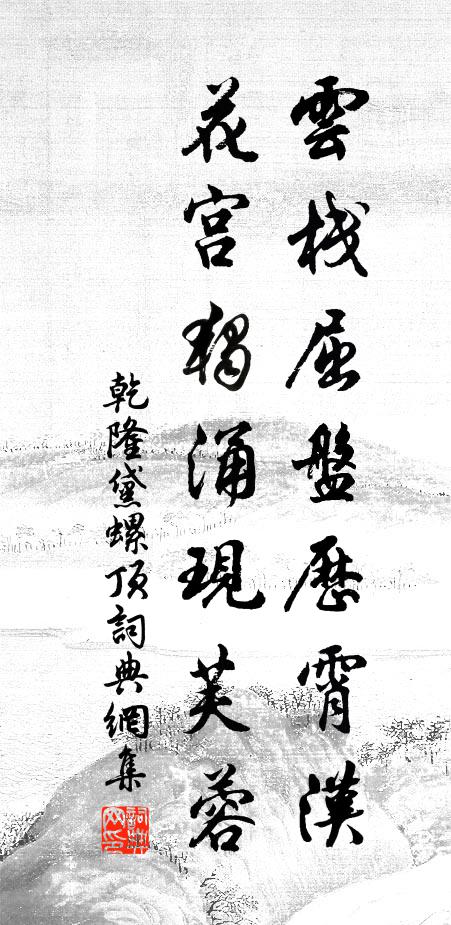 雲棧屈盤歷霄漢
花宮獨涌現芙蓉
乾隆黛螺頂詞典網集